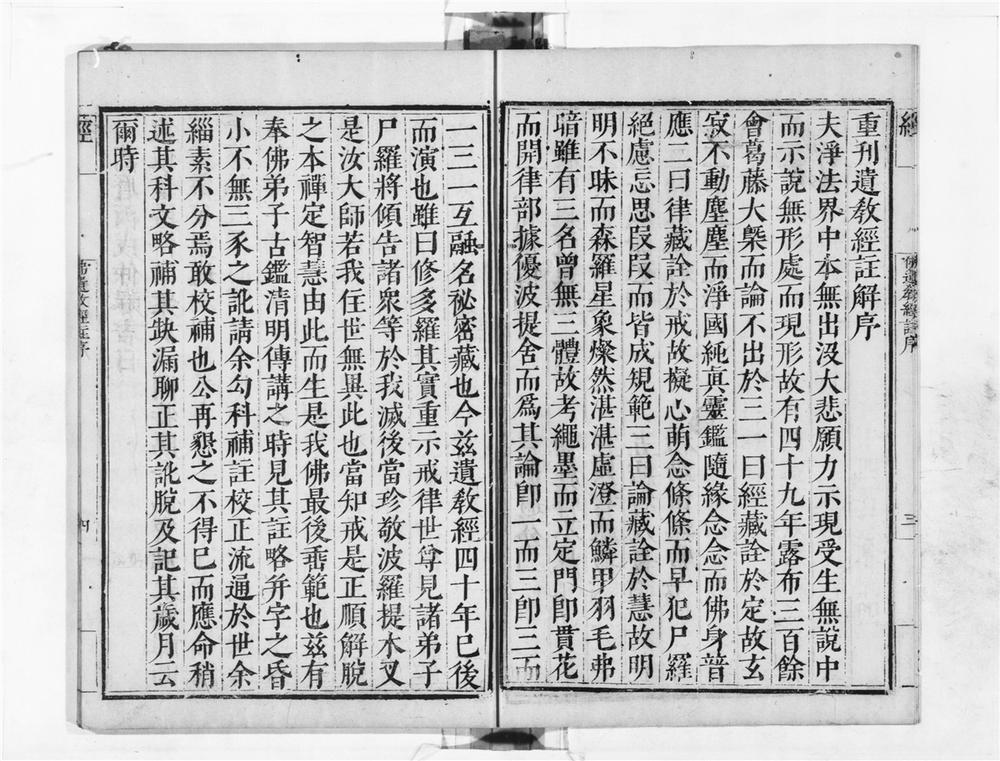 重刊遺敎經註解序
夫淨法界中本無出沒大悲願力示現受生無說中
而示說無形處而現形故有四十九年露布三百餘
會葛藤大㮣而論不出於三一曰經藏詮於定故玄
寂不動塵塵而淨國純眞靈鑑隨緣念念而佛身普
應二曰律藏詮於戒故擬心萌念條條而早犯尸羅
絕慮忘思段段而皆成䂓範三曰論藏詮於慧故明
明不昧而森羅星象燦然湛湛虛澄而鱗甲羽毛弗
暗雖有三名曾無三體故考繩墨而立定門卽貫花
而開律部據優波提舍而爲其論卽一而三卽三而
一三一互融名秘密藏也今玆遺敎經四十年已後
而演也雖曰修多羅其實重示戒律世尊見諸弟子
尸羅將傾告諸衆等於我滅後當珍敬波羅提木叉
是汝大師若我住世無異此也當知戒是正順解脫
之本禪定智慧由此而生是我佛最後垂範也玆有
奉佛弟子古鑑清明傳講之時見其註略并字之昏
小不無三豕之訛請余勾科補註校正流通於世余
緇素不分焉敢校補也公再懇之不得已而應命稍
述其科文略補其缺漏聊正其訛脫及記其歲月云
爾時
經
佛遺教經註序
三
經
佛遺教經註序
四